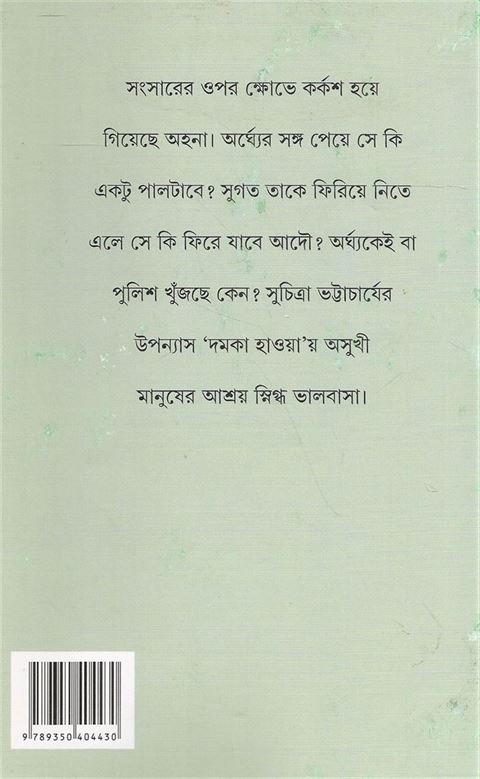 সংসারের ওপর ক্ষোভে কর্কশ হয়ে
গিয়েছে অহনা। অর্ঘ্যের সঙ্গ পেয়ে সে কি
একটু পালটাবে? সুগত তাকে ফিরিয়ে নিতে
এলে সে কি ফিরে যাবে আদৌ? অর্ঘ্যকেই বা
পুলিশ খুঁজছে কেন? সুচিত্রা ভট্টাচার্যের
উপন্যাস ‘দমকা হাওয়া’য় অসুখী
মানুষের আশ্রয় স্নিগ্ধ ভালবাসা।
9 789350 404430